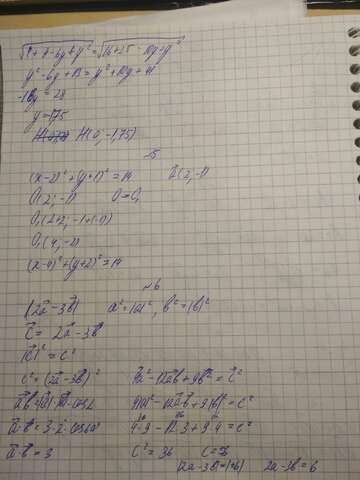 √4+9-6y+y² = √16+25-10y+y²
y²-6y+13 = y²+10y+41
-16y = 28
y = 1,75
H(0, -1,75)
№5
(x-2)²+(y+1)² = 14 ā(2, -1)
O(2; -1) O→O₁
O₁(2+2; -1+(-1))
O₁(4, -2)
(x-4)²+(y+2)² = 14
№6
|2a⃗-3b⃗| a² = |a|², b² = |b|²
c⃗ = 2a⃗-3b⃗
|c⃗|² = c²
c² = (2a⃗-3b⃗)² 4a²-12a⃗b⃗+9b² = c²
a⃗b⃗ = |a⃗|·|b⃗|·cosα 4|a|²-12a⃗b⃗+9|b|² = c²
a⃗·b⃗ = 3·2·cos60° 4·9-12·3+9·4 = c²
a⃗·b⃗ = 3 c² = 36
2a-3b = 6